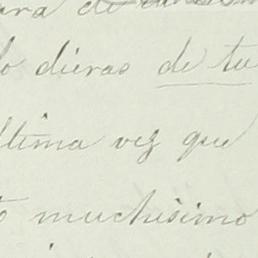 ara de
lo dieras de tu
ltima vez que
muchisimo